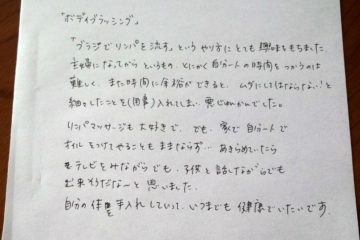 「ボディブラッシング」
「ブラシでリンパを流す」というやり方にとても興味をもちました。
主婦になってからというもの、とにかく自分の時間をつかうのは
難しく、また時間に余裕ができると、ムダにしてはならない！と
細々としたことを(用事)入れてしまい、実じれんまでした。
リンパマッサージも大好きで、でも、家で自分で
オイルをつけてやることもままならず… あきらめていたら
テレビをみながらでも、子供と話しながらでも
出来そうだな～と思いました。
自分の体を手入れしていって、いつまでも健康でいたいです